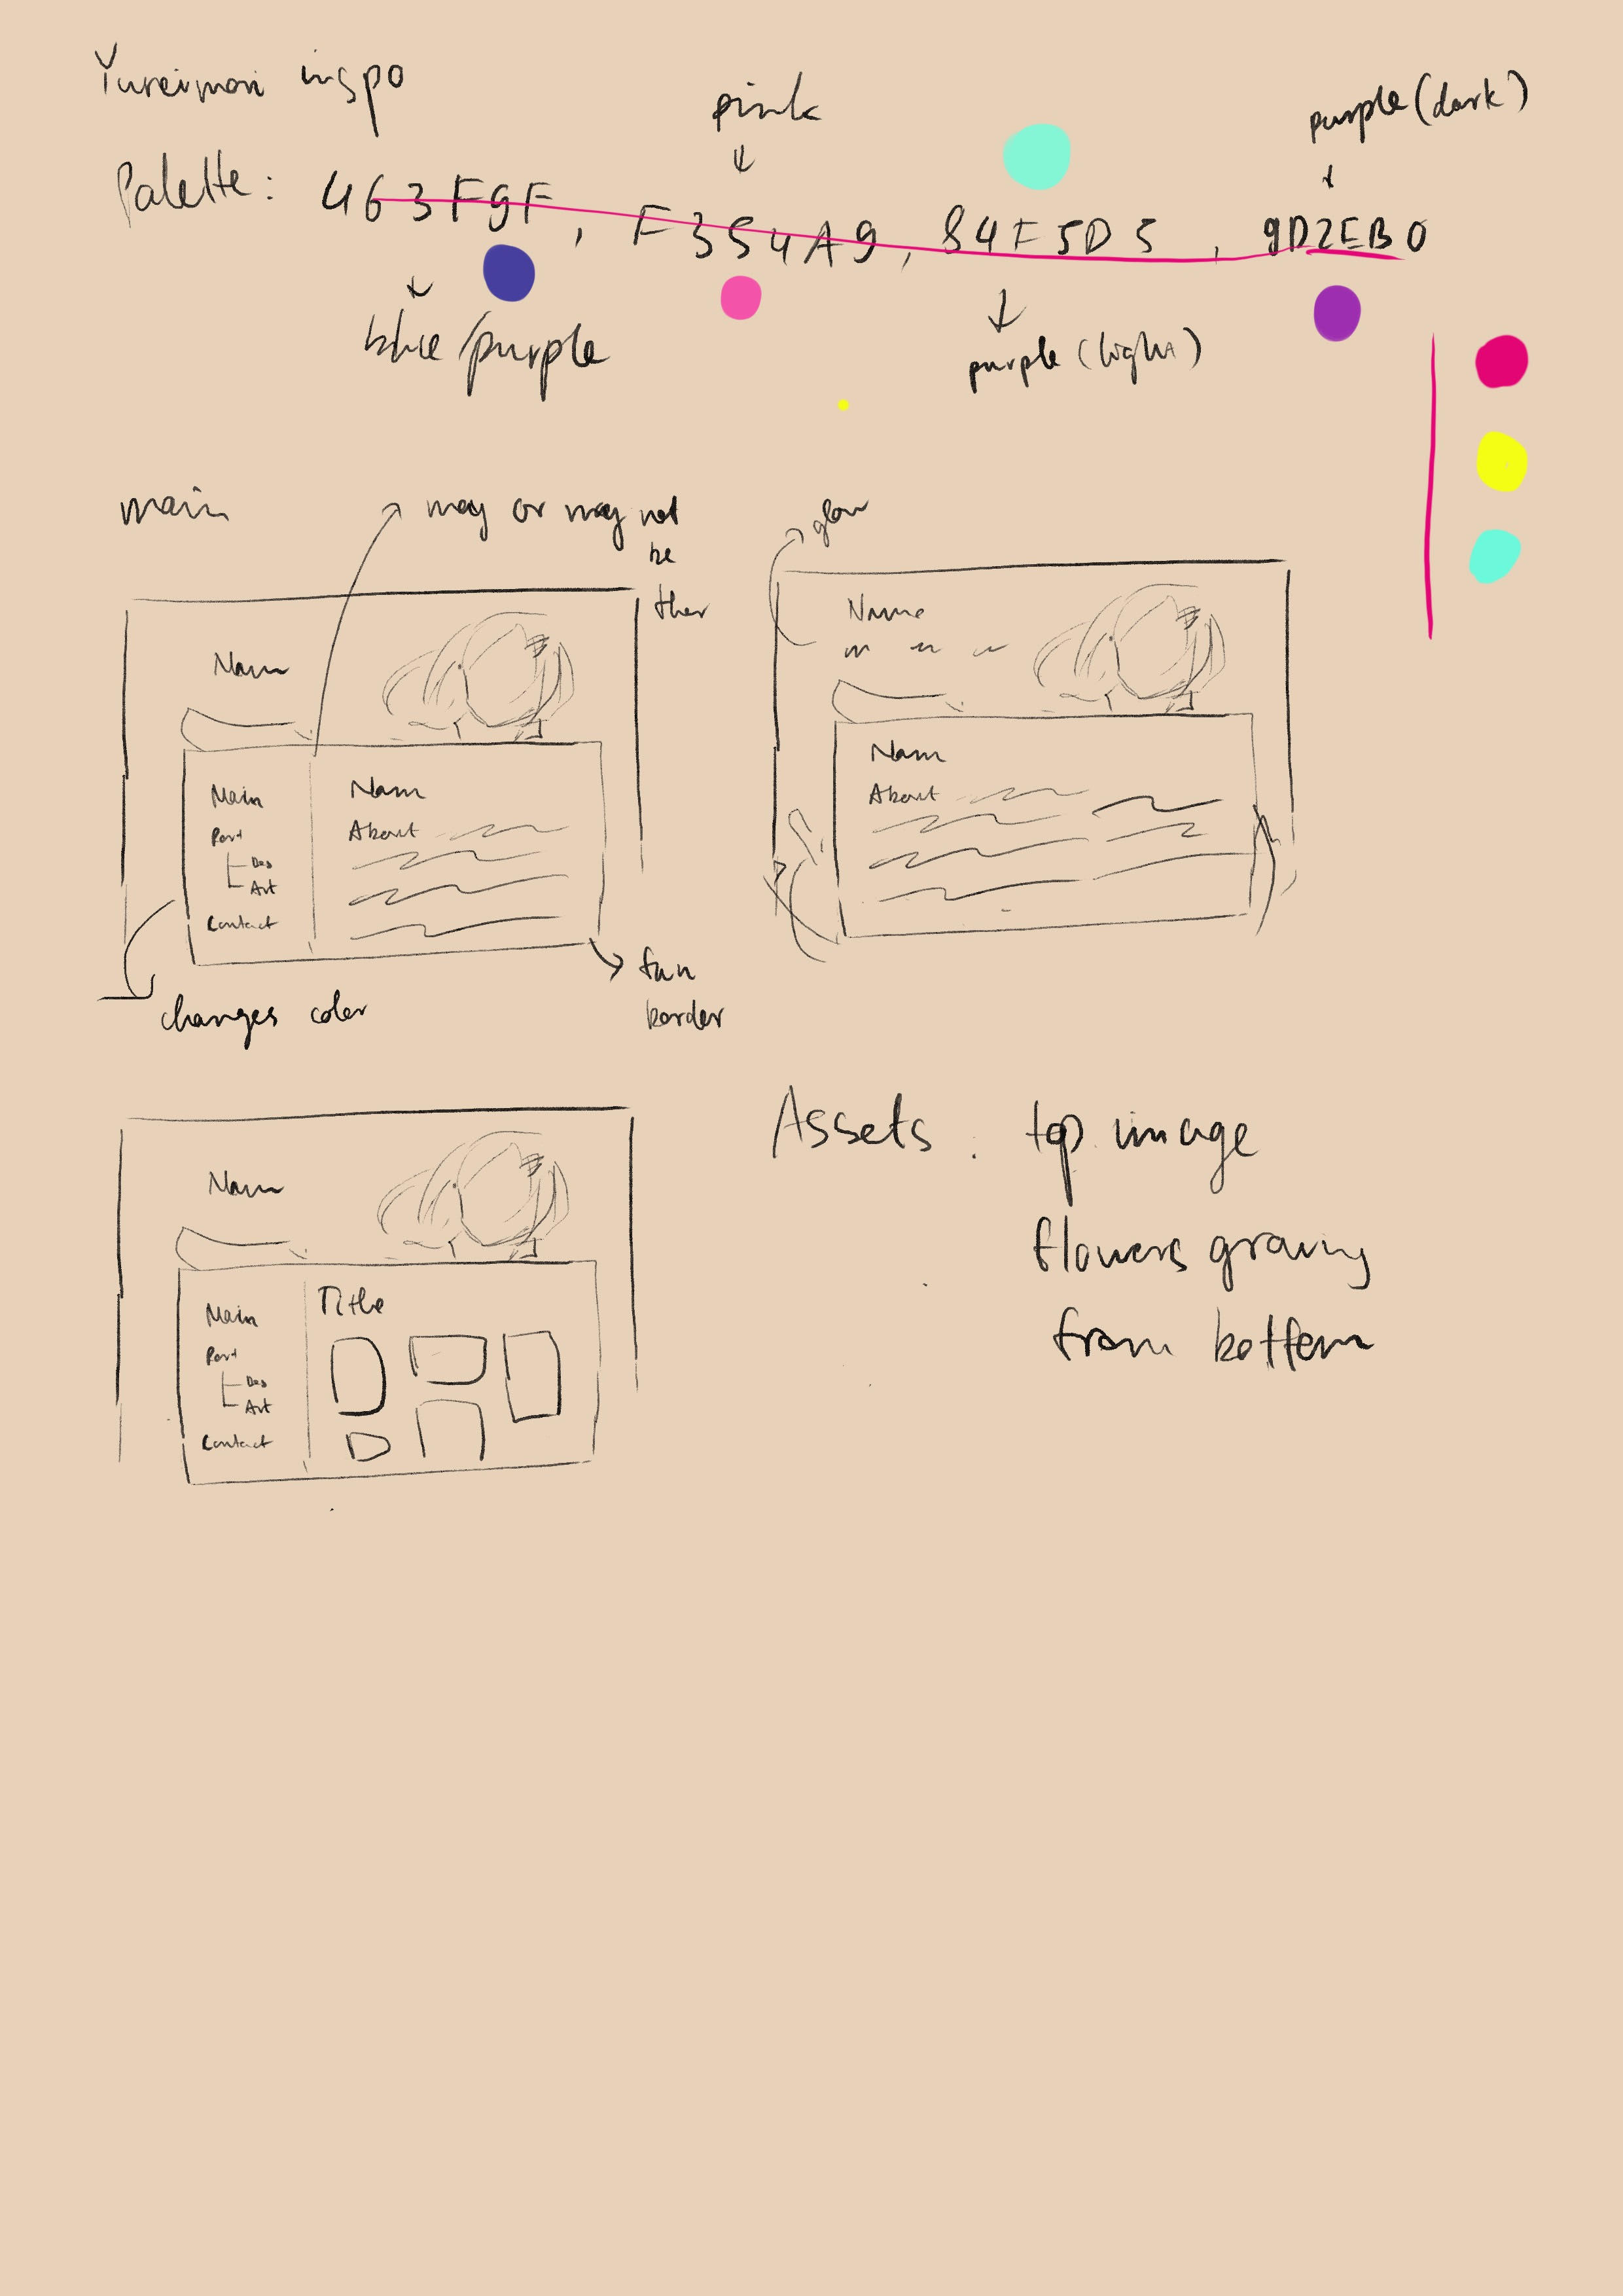 Yureimon inspo
pink
purple (dark)
Palette: 463F9F, F354A9, 84F5D5, 9D2EB0
blue/purple
purple (light)
main
may or may not
be
ther
glow
Name
Main
Port
Des
Art
Contact
Name
About
changes color
fan
border
Name
Name
About
Name
Main
Port
Des
Art
Contact
Title
Assets: top image
flowers growing
from bottom